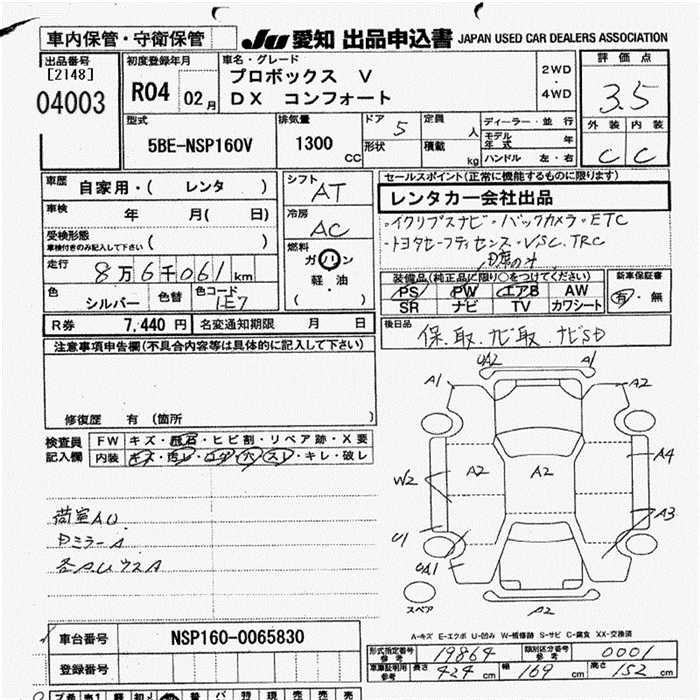 車内保管・守衛保管
JU 愛知 出品申込書 JAPAN USED CAR DEALERS ASSOCIATION
出品番号
[2148]
04003
初度登録年月
R04 02月
車名・グレード
プロボックス V
DX コンフォート
2WD
・
4WD
評価点
3.5
外装 内装
C C
型式
5BE-NSP160V
排気量
1300
CC
ドア 5
形状
定員 人
積載 kg
ディーラー・並行
モデル年式 年
ハンドル 左・右
車歴 自家用・( レンタ )
車検 年 月( 日)
受検形態
車検付きのみ記入して下さい ( )
走行 8万6千061km
色 シルバー
色替
色コード 1E7
シフト
AT
冷房
AC
燃料
ガソリン
軽・油
( )
セールスポイント(正常に機能するものに限ります)
レンタカー会社出品
・イクリプスナビ・バックカメラ・ETC
・トヨタセーフティセンス・VSC.TRC
装備品(純正品に限り○をつけてください)
PS PW エアB AW
SR ナビ TV カワシート
新車保証書
有・無
R券 7,440 円
名変通知期限 月 日
後日品
保.取.ナビ取.ナビSD
注意事項申告欄(不具合内容等は具体的に記入して下さい)
修復歴 有 (箇所 )
検査員記入欄
FW キズ・飛石・ヒビ割・リペア跡・X要
内装 キズ・汚レ・コゲ・穴・スレ・キレ・破レ
荷室AU
DミラーA
各A.UウスA
UA2 A1
A1 A2
W2 A2 A2 A4
A3
U1
UA1
A2
スペア
A-キズ E-エクボ U-凹み W-補修跡 S-サビ C-腐食 XX-交換済
車台番号 NSP160-0065830
登録番号
形式指定番号 参考 19864
類別区分番号 参考 0001
車庫証明用 参考 長さ 424 cm 幅 169 cm 高さ 152 cm